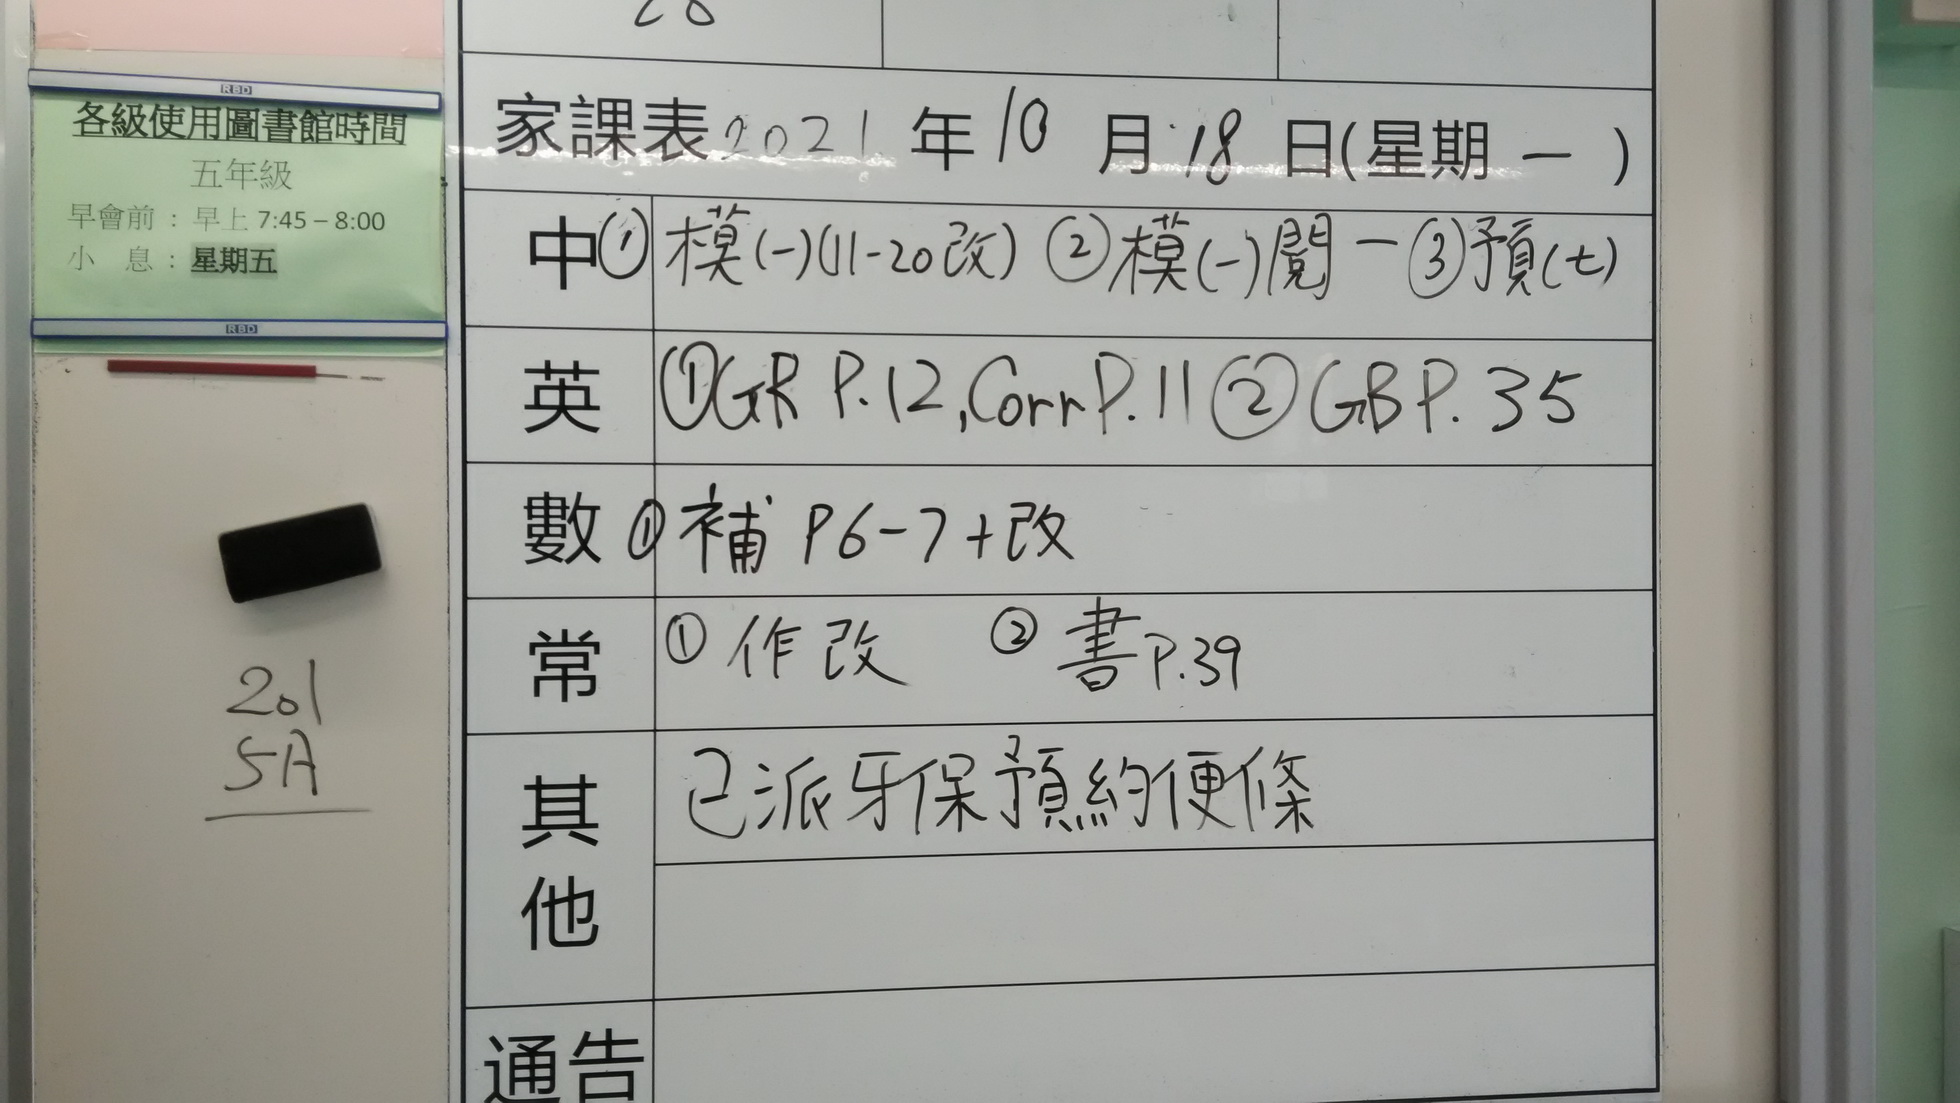 RBD
各級使用圖書館時間
五年級
早會前：早上 7:45 – 8:00
小 息：星期五
RBD
201
5A
家課表2021年10月18日(星期一)
中 ①模(一)(11-20改) ②模(一)閱一 ③預(七)
英 ①GR P.12,Corr P.11 ②GB P.35
數 ①補 P6-7+改
常 ①作改 ②書P.39
其他 已派牙保預約便條
通告